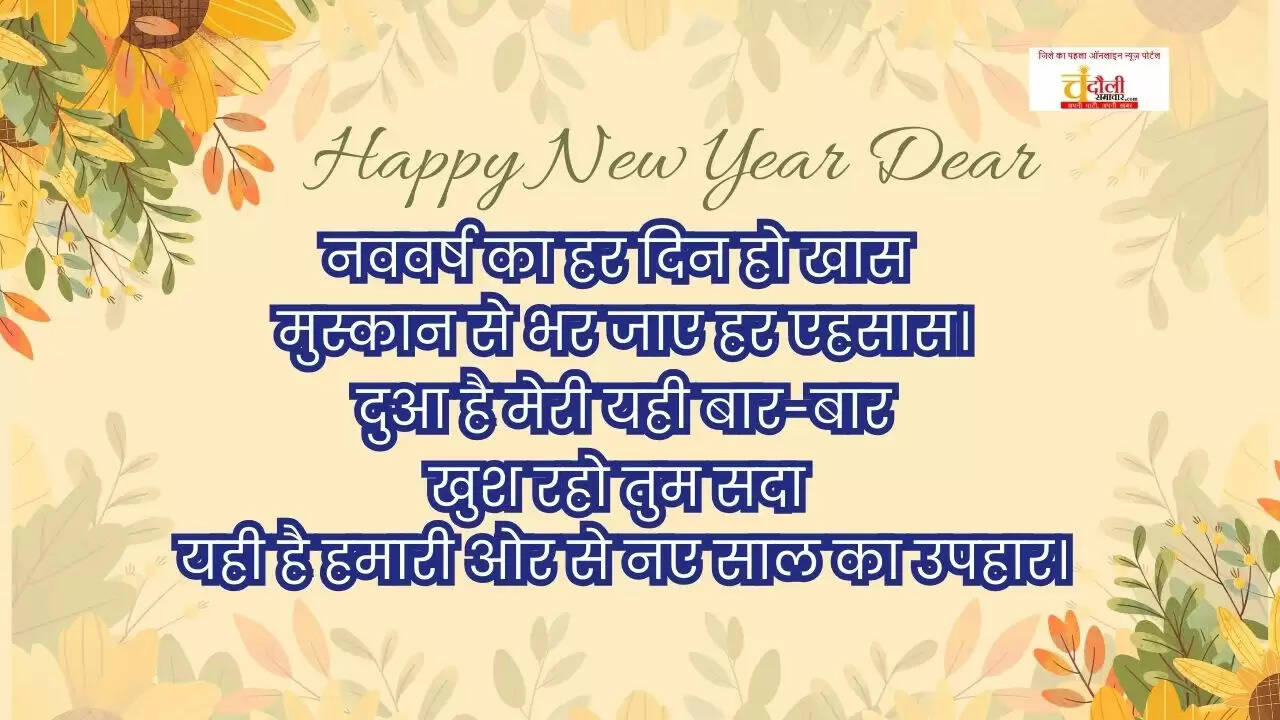 जिले का पहला ऑनलाइन न्यूज़ पोर्टल
चंदौली
समाचार.com
अपनी माटी, अपनी खबर
Happy New Year Dear
नववर्ष का हर दिन हो खास
मुस्कान से भर जाए हर एहसास।
दुआ है मेरी यही बार-बार
खुश रहो तुम सदा
यही है हमारी ओर से नए साल का उपहार।